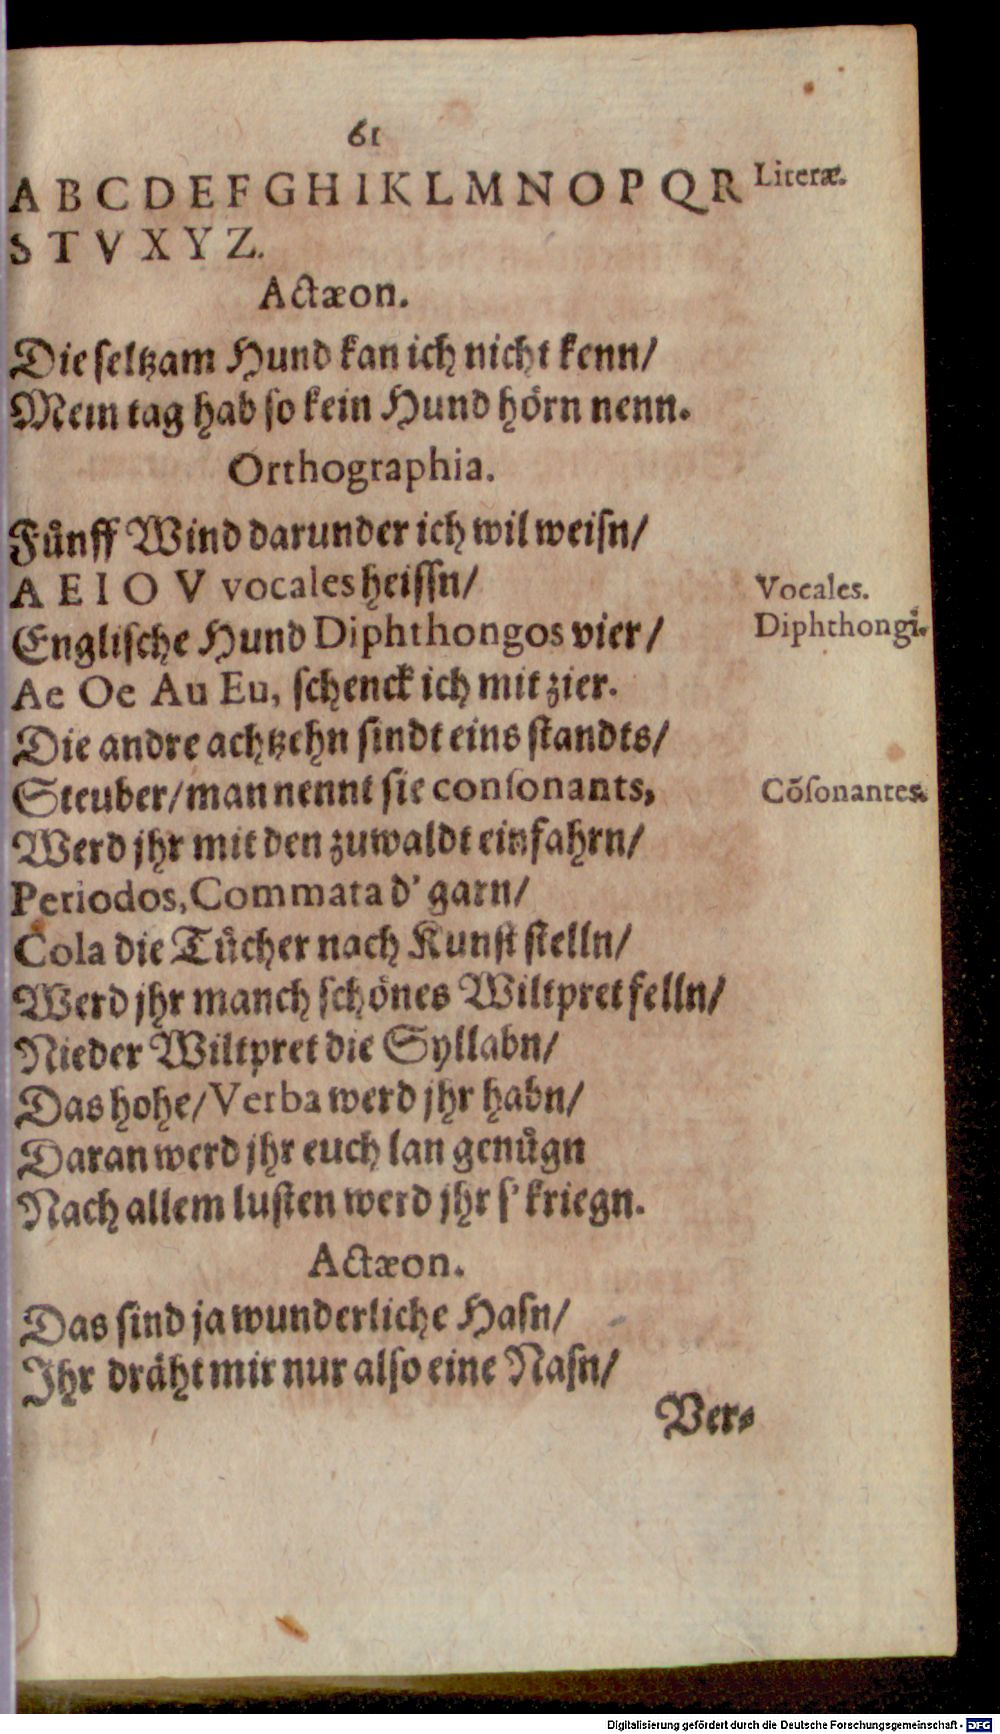 61
A B C D E F G H I K L M N O P Q R Literæ.
S T V X Y Z.
Actæon.
Die seltzam Hund kan ich nicht kenn/
Mein tag hab so kein Hund hörn nenn.
Orthographia.
Fůnff Wind darunder ich wil weisn/
A E I O V vocales heissn/ Vocales.
Englische Hund Diphthongos vier/ Diphthongi.
Ae Oe Au Eu, schenck ich mit zier.
Die andre achtzehn sindt eins standts/
Steuber/ man nennt sie consonants, Cõsonantes.
Werd jhr mit den zuwaldt einfahrn/
Periodos, Commata d' garn/
Cola die Tůcher nach Kunst stelln/
Werd jhr manch schönes Wiltpret felln/
Nieder Wiltpret die Syllabn/
Das hohe/ Verba werd jhr habn/
Daran werd jhr euch lan genůgn
Nach allem lusten werd jhr s' kriegn.
Actæon.
Das sind ja wunderliche Hasn/
Ihr dräht mir nur also eine Nasn/
Ver-
Digitalisierung gefördert durch die Deutsche Forschungsgemeinschaft - DFG